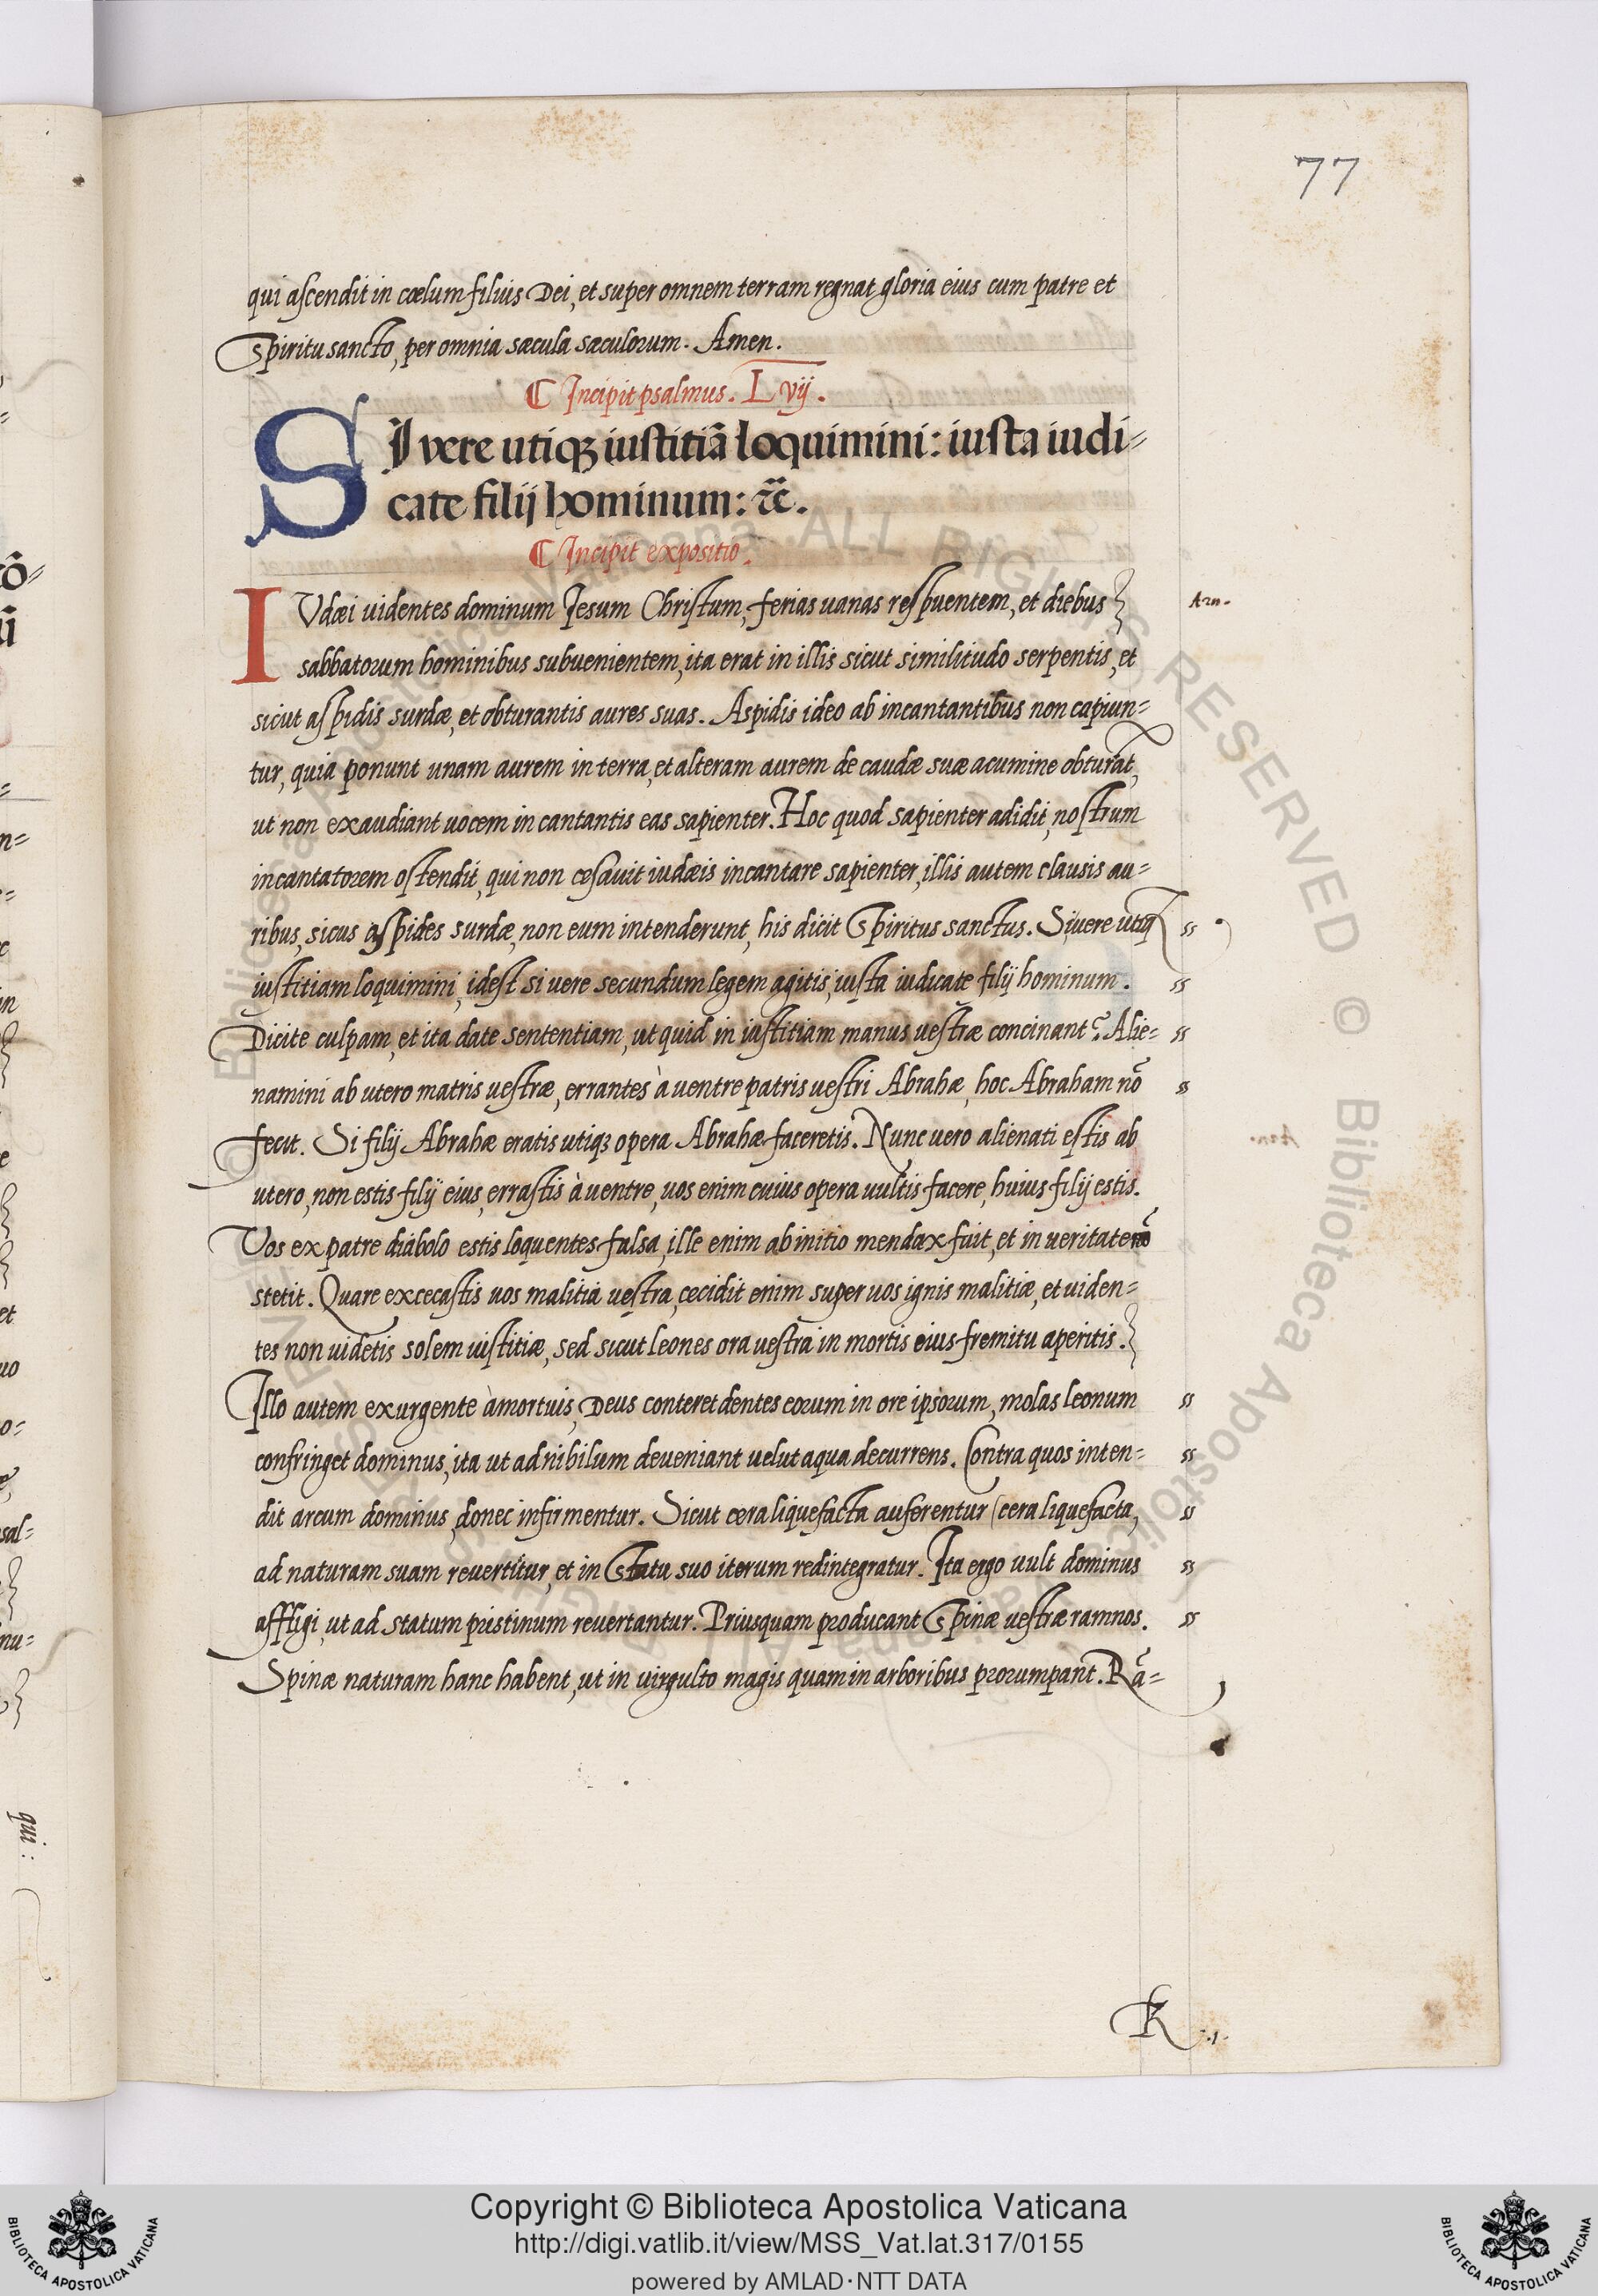 77
qui ascendit in cœlum filius Dei, et super omnem terram regnat gloria eius cum patre et
Spiritu sancto, per omnia sæcula sæculorum. Amen.
Incipit psalmus. Lvij.
SI vere utiqꝫ iustitiā loquimini: iusta iudi=
cate filij hominum: ⁊c̄.
Incipit expositio.
IVdæi uidentes dominum Jesum Christum, ferias uanas respuentem, et diebus
Arn.
sabbatorum hominibus subuenientem, ita erat in illis sicut similitudo serpentis, et
sicut aspidis surdæ, et obturantis aures suas. Aspidis ideo ab incantantibus non capiun=
tur, quia ponunt unam aurem in terra, et alteram aurem de caudæ suæ acumine obturāt,
ut non exaudiant uocem in cantantis eas sapienter. Hoc quod sapienter adidit, nostrum
incantatorem ostendit, qui non cesauit iudæis incantare sapienter, illis autem clausis au=
ribus, sicus aspides surdæ, non eum intenderunt, his dicit Spiritus sanctus. Si uere utiq
iustitiam loquimini, idest si uere secundum legem agitis, iusta iudicate filij hominum.
Dicite culpam, et ita date sententiam, ut quid in iustitiam manus uestræ concinant? Alie=
namini ab utero matris uestræ, errantes à uentre patris uestri Abrahæ, hoc Abraham nō
fecit. Si filij Abrahæ eratis utiqꝫ opera Abrahæ faceretis. Nunc uero alienati estis ab
utero, non estis filij eius, errastis à uentre, uos enim cuius opera uultis facere, huius filij estis.
Vos ex patre diabolo estis loquentes falsa, ille enim ab initio mendax fuit, et in ueritate nō
stetit. Quare excecastis uos malitia uestra, cecidit enim super uos ignis malitiæ, et uiden=
tes non uidetis solem iustitiæ, sed sicut leones ora uestra in mortis eius fremitu aperitis.
Illo autem exurgente à mortuis, Deus conteret dentes eorum in ore ipsorum, molas leonum
confringet dominus, ita ut ad nihilum deueniant uelut aqua decurrens. Contra quos inten=
dit arcum dominus, donec infirmentur. Sicut cera liquefacta auferentur (cera liquefacta,
ad naturam suam reuertitur, et in Statu suo iterum redintegratur. Ita ergo uult dominus
affligi, ut ad statum pristinum reuertantur. Priusquam producant Spinæ uestræ ramnos.
Spinæ naturam hanc habent, ut in uirgulto magis quam in arboribus prorumpant. Rā=
K .1.
qui:
Copyright © Biblioteca Apostolica Vaticana
http://digi.vatlib.it/view/MSS_Vat.lat.317/0155
powered by AMLAD·NTT DATA